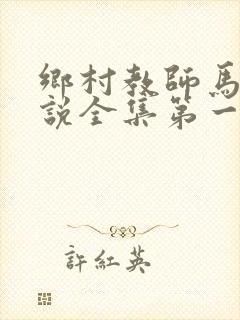 鄉村教師馬
說全集第一
許紅英